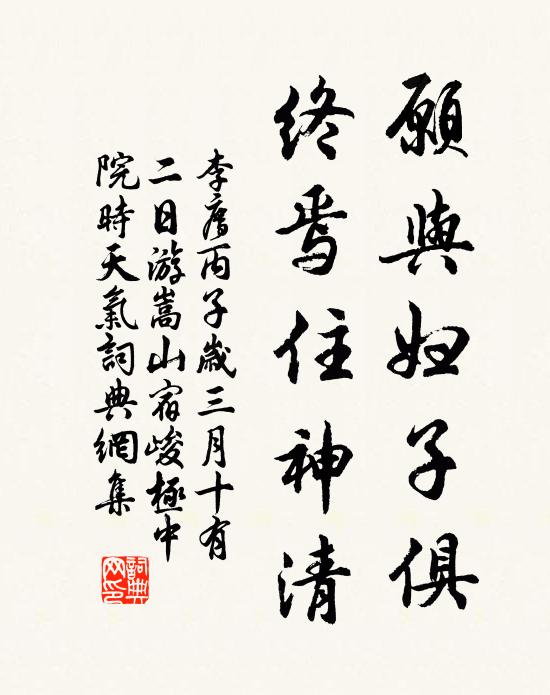 願與妃子俱
終焉住神清
李廌丙子歲三月十有
二日游嵩山宿峻極中
院時天氣詞典網集
詞典網印